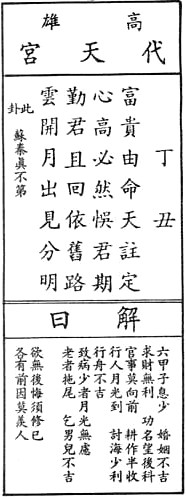 高雄
代天宮
丁丑
富貴由命天註定
心高必然悞君期
勤君且回依舊路
雲開月出見分明
此卦 蘇秦眞不第
解曰
六甲子息少 婚姻不吉
求財無利 功名望後科
官事莫向前 耕作半收
行人月光到 討海少利
行舟不吉
致病少者月光無慮
老者拖尾 乞男兒不吉
欲無後悔須修己
各有前因莫羨人